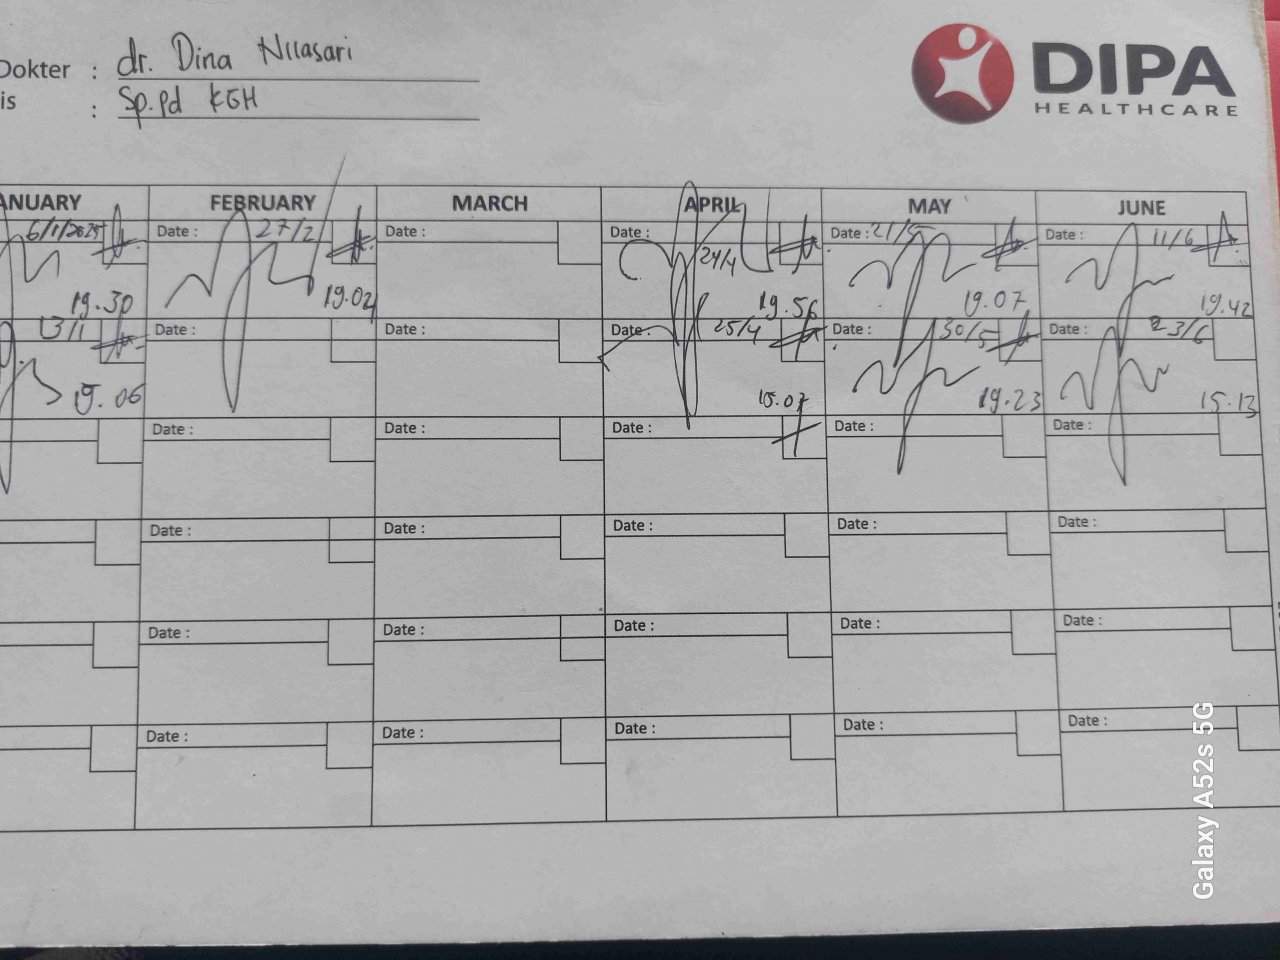 Dokter : dr. Dina Nilasari
is : Sp.pd KGH
DIPA
HEALTHCARE
ANUARY FEBRUARY MARCH APRIL MAY JUNE
6/1/2025 Date : 27/2 Date : Date : 24/4 Date : 21/5 Date : 11/6
19.30 19.02 19.56 19.07 19.42
13/1 Date : Date : Date : 25/4 Date : 30/5 Date : 23/6
19.23 15.13
Date : Date : Date : Date : Date :
Date : Date : Date : Date : Date :
Date : Date : Date : Date : Date :
Date : Date : Date : Date : Date :
Galaxy A52s 5G